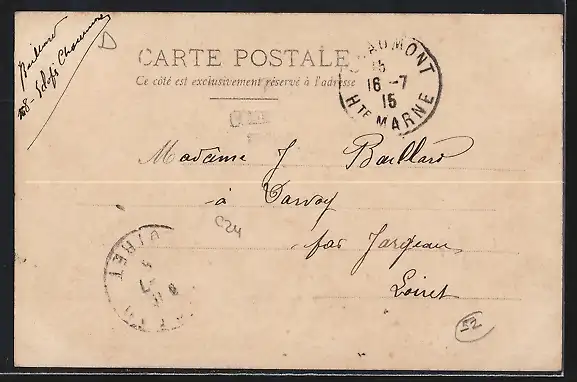 Baillard
CARTE POSTALE
Ce côté est exclusivement réservé à l'adresse
CHAUMONT
15
16-7
15
HTE MARNE
Madame J Baillard
à Darvoy
par Jargeau
Loiret
C24
LOIRET
52